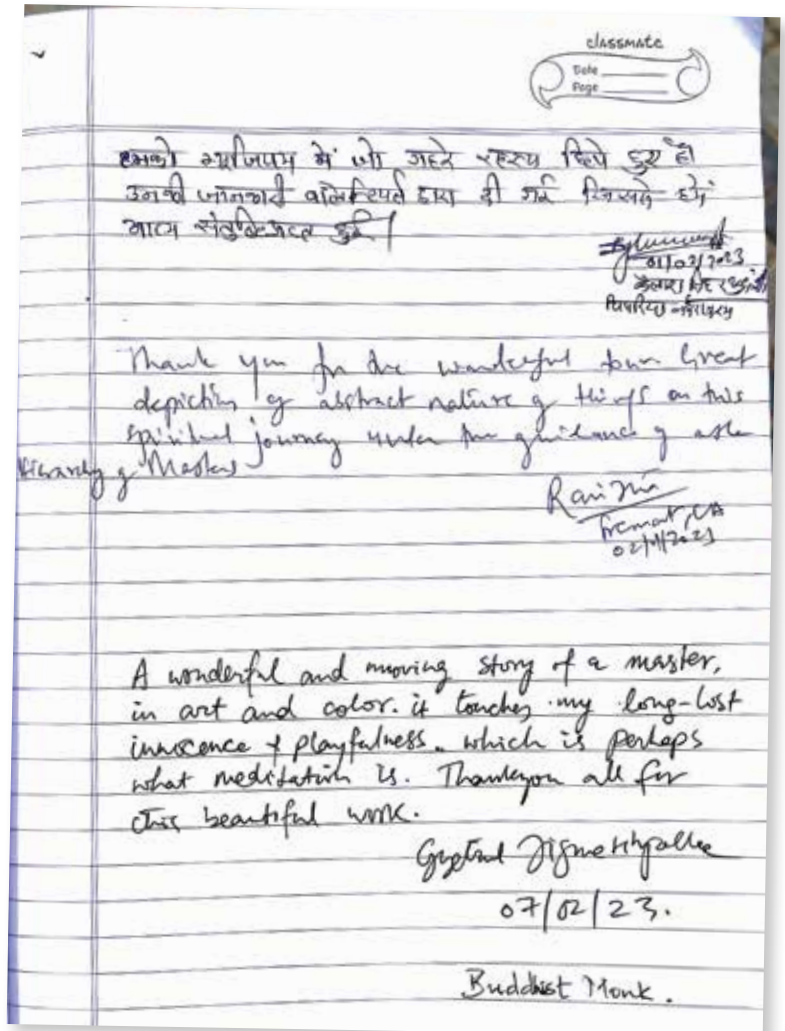 classmate
Date
Page
हमको म्यूजियम में जो गहरे रहस्य छिपे हुए हैं
उनकी जानकारी द्वारा दी गई जिससे हमें
आत्म संतुष्टि हुई |
01/02/2023
Thank you for the wonderful tour Great
depiction of abstract nature of things on this
spiritual journey under the guidance of
Hierarchy of Masters
Fremont, CA
A wonderful and moving story of a master,
in art and color. it touches my long-lost
innocence & playfulness. which is perhaps
what meditation is. Thankyou all for
this beautiful work.
07/02/23.
Buddhist Monk.